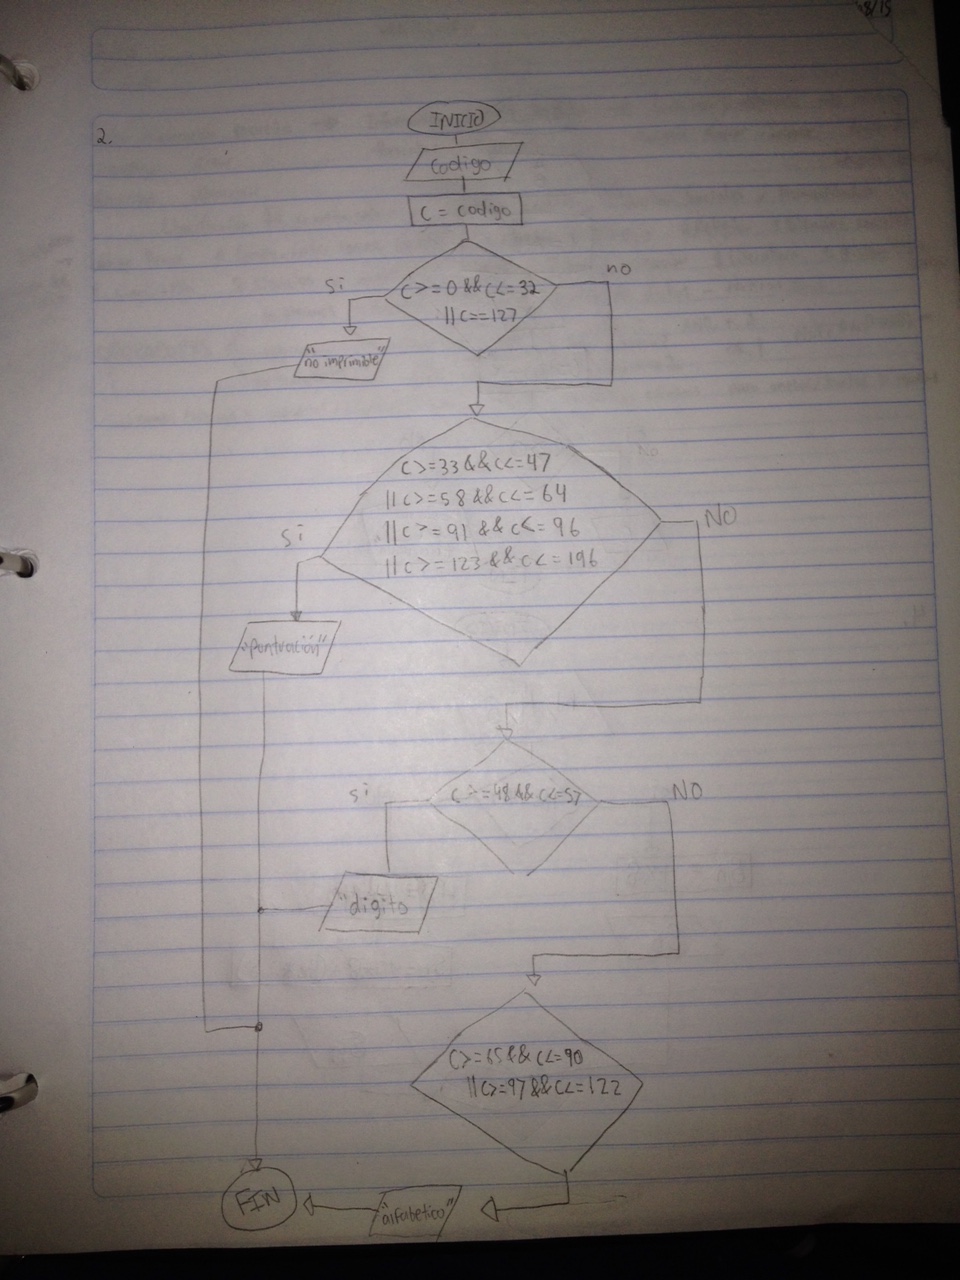 8/15
2.
INICIO
Codigo
C = codigo
si
no
C>=0 && C<=32
|| C==127
"no imprimible"
C>=33 && C<=47
|| C>=58 && C<=64
|| C>=91 && C<=96
|| C>=123 && C<=196
si
NO
"puntuación"
si
NO
C>=48 && C<=57
"digito"
C>=65 && C<=90
|| C>=97 && C<=122
FIN
"alfabetico"